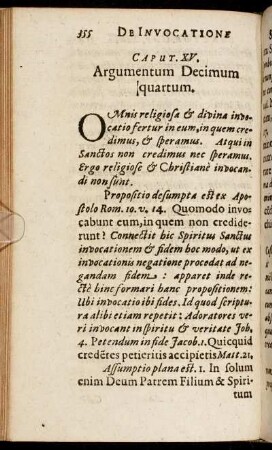 355 DE INVOCATIONE
CAPUT. XV.
Argumentum Decimum
quartum.
OMnis religiosa & divina invo-
catio fertur in eum, in quem cre-
dimus, & speramus. Atqui in
Sanctos non credimus nec speramus.
Ergo religiosè & Christianè invocan-
di non sunt.
Propositio desumpta est ex Apo-
stolo Rom. 10. v. 14. Quomodo invo-
cabunt eum, in quem non credide-
runt? Connectit hic Spiritus Sanctus
invocationem & fidem hoc modo, ut ex
invocationis negatione procedat ad ne-
gandam fidem: apparet inde re-
ctè hinc formari hanc propositionem:
Ubi invocatio ibi fides. Id quod scriptu-
ra alibi etiam repetit: Adoratores ve-
ri invocant in spiritu & veritate Joh.
4. Petendum in fide Jacob. 1. Quicquid
credentes petieritis accipietis Matt. 21.
Assumptio plana est. 1. In solum
enim Deum Patrem Filium & Spiri-
tum